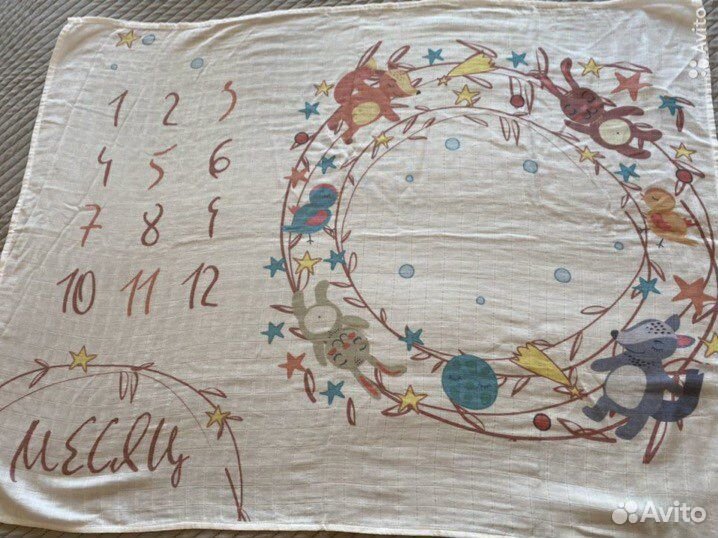 1 2 3
4 5 6
7 8 9
10 11 12
МЕСЯЦ
Avito
Avito